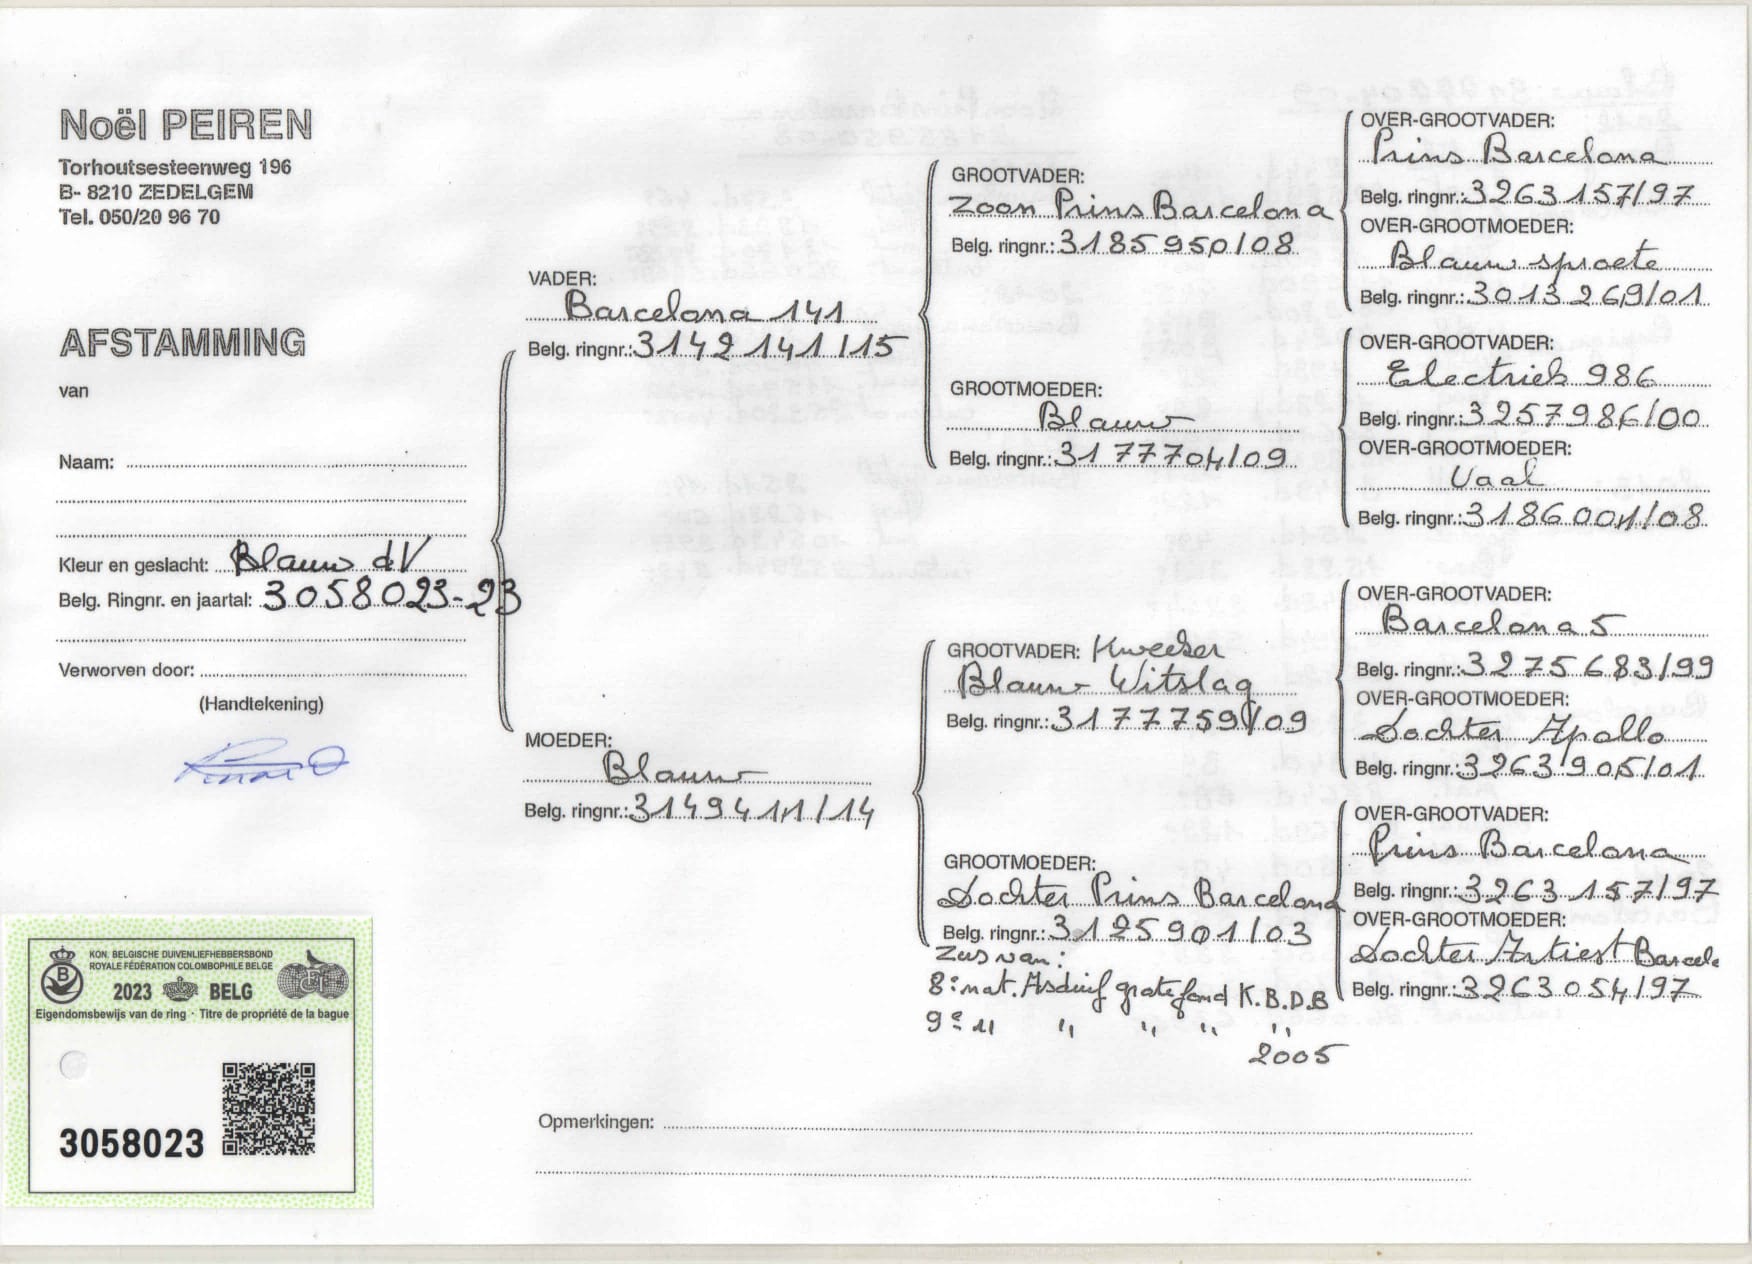 Noël PEIREN
Torhoutsesteenweg 196
B- 8210 ZEDELGEM
Tel. 050/20 96 70
AFSTAMMING
van
Naam:
Kleur en geslacht: Blauw dV
Belg. Ringnr. en jaartal: 3058023-23
Verworven door:
(Handtekening)
KON. BELGISCHE DUIVENLIEFHEBBERSBOND
ROYALE FÉDÉRATION COLOMBOPHILE BELGE
2023 BELG
Eigendomsbewijs van de ring · Titre de propriété de la bague
3058023
VADER:
Barcelona 141
Belg. ringnr.: 3142141/15
MOEDER:
Blauw
Belg. ringnr.: 3149411/14
GROOTVADER:
Zoon Prins Barcelona
Belg. ringnr.: 3185950/08
GROOTMOEDER:
Blauw
Belg. ringnr.: 3177704/09
GROOTVADER: Kweeker
Blauw Witslag
Belg. ringnr.: 3177759/09
GROOTMOEDER:
Dochter Prins Barcelona
Belg. ringnr.: 3125901/03
Zus van:
8e nat. Asduif grote fond K.B.D.B
9e " " " " "
2005
OVER-GROOTVADER:
Prins Barcelona
Belg. ringnr.: 3263157/97
OVER-GROOTMOEDER:
Blauw sproete
Belg. ringnr.: 3013269/01
OVER-GROOTVADER:
Electriek 986
Belg. ringnr.: 3257986/00
OVER-GROOTMOEDER:
Vaal
Belg. ringnr.: 3186001/08
OVER-GROOTVADER:
Barcelona 5
Belg. ringnr.: 3275683/99
OVER-GROOTMOEDER:
Dochter Apollo
Belg. ringnr.: 3263905/01
OVER-GROOTVADER:
Prins Barcelona
Belg. ringnr.: 3263157/97
OVER-GROOTMOEDER:
Dochter Artiest Barcelo
Belg. ringnr.: 3263054/97
Opmerkingen: